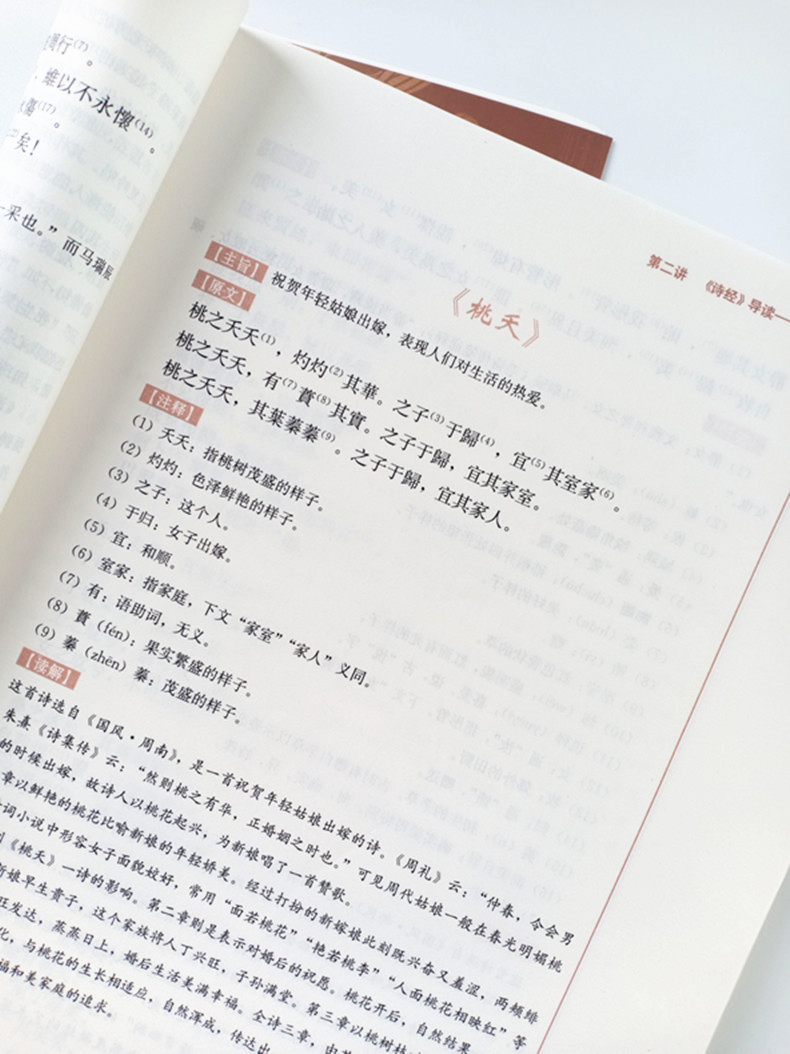 周行⁽⁷⁾。
维以不永懷⁽¹⁴⁾。
⁽¹⁷⁾。
矣！
采也。”而马瑞辰
第二讲 《诗经》导读
《桃夭》
【主旨】祝贺年轻姑娘出嫁，表现人们对生活的热爱。
【原文】
桃之夭夭⁽¹⁾，灼灼⁽²⁾其華。之子⁽³⁾于歸⁽⁴⁾，宜⁽⁵⁾其室家⁽⁶⁾。
桃之夭夭，有⁽⁷⁾蕡⁽⁸⁾其實。之子于歸，宜其家室。
桃之夭夭，其葉蓁蓁⁽⁹⁾。之子于歸，宜其家人。
【注释】
(1) 夭夭：指桃树茂盛的样子。
(2) 灼灼：色泽鲜艳的样子。
(3) 之子：这个人。
(4) 于归：女子出嫁。
(5) 宜：和顺。
(6) 室家：指家庭，下文“家室”“家人”义同。
(7) 有：语助词，无义。
(8) 蕡（fén）：果实繁盛的样子。
(9) 蓁（zhēn）蓁：茂盛的样子。
【读解】
这首诗选自《国风·周南》，是一首祝贺年轻姑娘出嫁的诗。《周礼》云：“仲春，令会男
朱熹《诗集传》云：“然则桃之有华，正婚姻之时也。”可见周代姑娘一般在春光明媚桃
的时候出嫁，故诗人以桃花起兴，为新娘唱了一首赞歌。
章以鲜艳的桃花比喻新娘的年轻娇美。经过打扮的新嫁娘此刻既兴奋又羞涩，两颊绯
词小说中形容女子面貌姣好，常用“面若桃花”“艳若桃李”“人面桃花相映红”等
《桃夭》一诗的影响。第二章则是表示对婚后的祝愿。桃花开后，自然结果
新娘早生贵子，这个家族将人丁兴旺，子孙满堂。第三章以桃树枝
旺发达，蒸蒸日上，婚后生活美满幸福。全诗三章，由
化，与桃花的生长相适应，自然浑成，传达出
福和美家庭的追求。